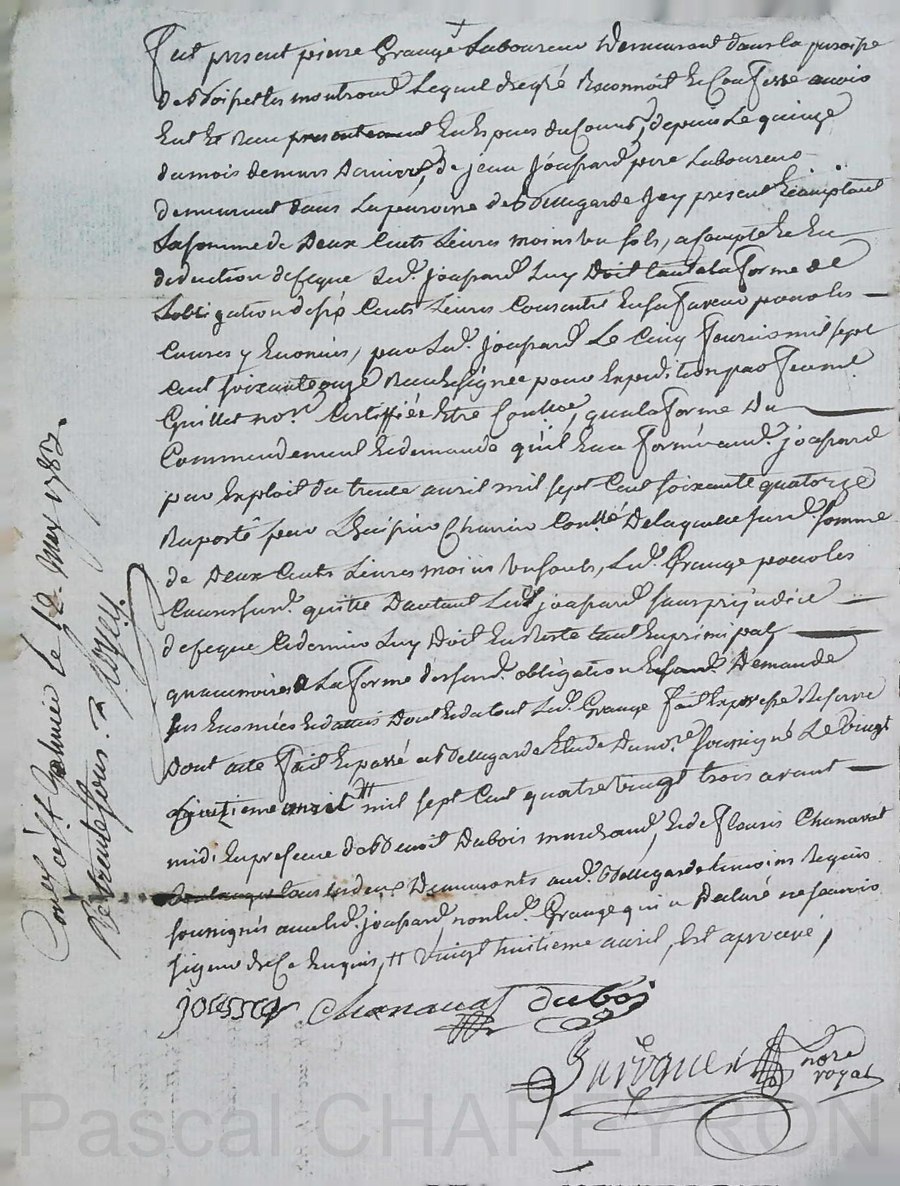 Fut present pierre Grange Laboureur Demeurant dans la paroisse
de Boisset les montrond Lequel de gré Reconnoit Et Confesse avoir
Eut Et Reçu presentement En Especes du Cours, depuis Le quinze
du mois de mars Dernier, de jean joapard pere Laboureur
demeurant dans La paroisse de Bellegarde Jcy present Et acceptant
La somme de Deux Cents Livres moins un sols, a Compte Et En
deduction de Ceque Led. joapard Luy Doit tant a la forme de
Lobligation de six Cents Livres Consentie En sa faveur pour les
Causes y Enoncées, par Led. joapard Le Cinq mil sept
Cent soixante onze Receue signée pour Expedition par
Guillot nore. Certiffiée Etre Conllée, qu'a la forme Du
Commendement Et demande qu'il En a formé aud. joapard
par Exploit du trente avril mil sept Cent soixante quatorze
Raporté par Chanin Conllé De laquelle susd. somme
de Deux Cents Livres moins un sols, Led. Grange pour les
Causes susd. quitte Dautant Led. joapard sans prejudice
de Ceque Ce dernier Luy Doit En Reste tant En principal
qu'accessoires a La forme desd. obligation Demande
sus Enoncées Et Dont Et du tout Led. Grange fait Expresse Reserve
Dont acte fait Et passé a Bellegarde Etude Du nore. soussigné Le vingt
avril # mil sept Cent quatre vingt trois avant
midi En presence de Benoit Dubois marchand, Et de Fleuris Chanavat
tous les deux Demeurants aud. Bellegarde temoins Requis
soussignés avec led. joapard, non led. Grange qui a Declaré ne sçavoir
signer de Ce Enquis, # vingt huitieme avril, Est aprouvé,
Chanavat Dubois
nore
royal
Con.lé a St Galmier le 12 may 1783.
Rc trente sous.
Pascal CHAREYRON